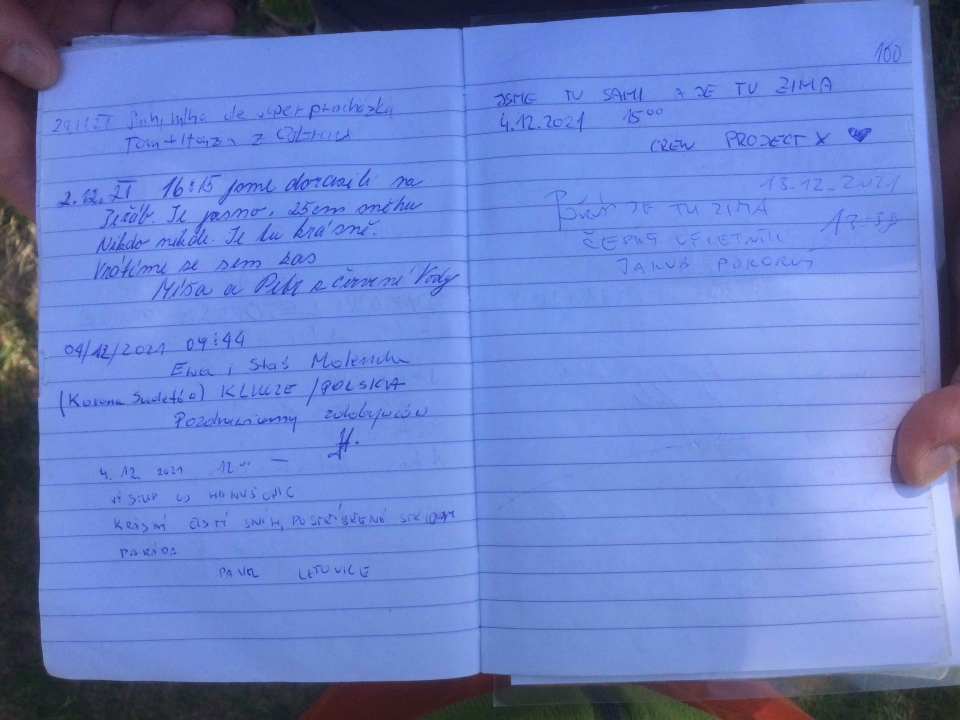 de super procházka
Tom + Honza z
2.12.21 16:15 jsme dorazili na
Jeřáb. Je jasno. 25cm sněhu
Nikdo nikde. Je tu krásně.
Vrátíme se sem zas
Míša a Petr z Červené Vody
04/12/2021 09:44
Ewa i Staś
(Korona Sudetów) /POLSKA
Pozdrawiamy zdobywców
4. 12. 2021 12⁰⁰
VÝSTUP Z HANUŠOVIC
KRÁSNÝ ČISTÝ SNÍH, POSTŘÍBŘENÉ
PARÁDA
PAVEL LETOVICE
100
JSME TU SAMI A JE TU ZIMA
4.12.2021 15⁰⁰
CREW PROJECT X ♥
13.12.2021
JE TU ZIMA
ČESKÝ VÝLETNÍK
JAKUB POKORNÝ